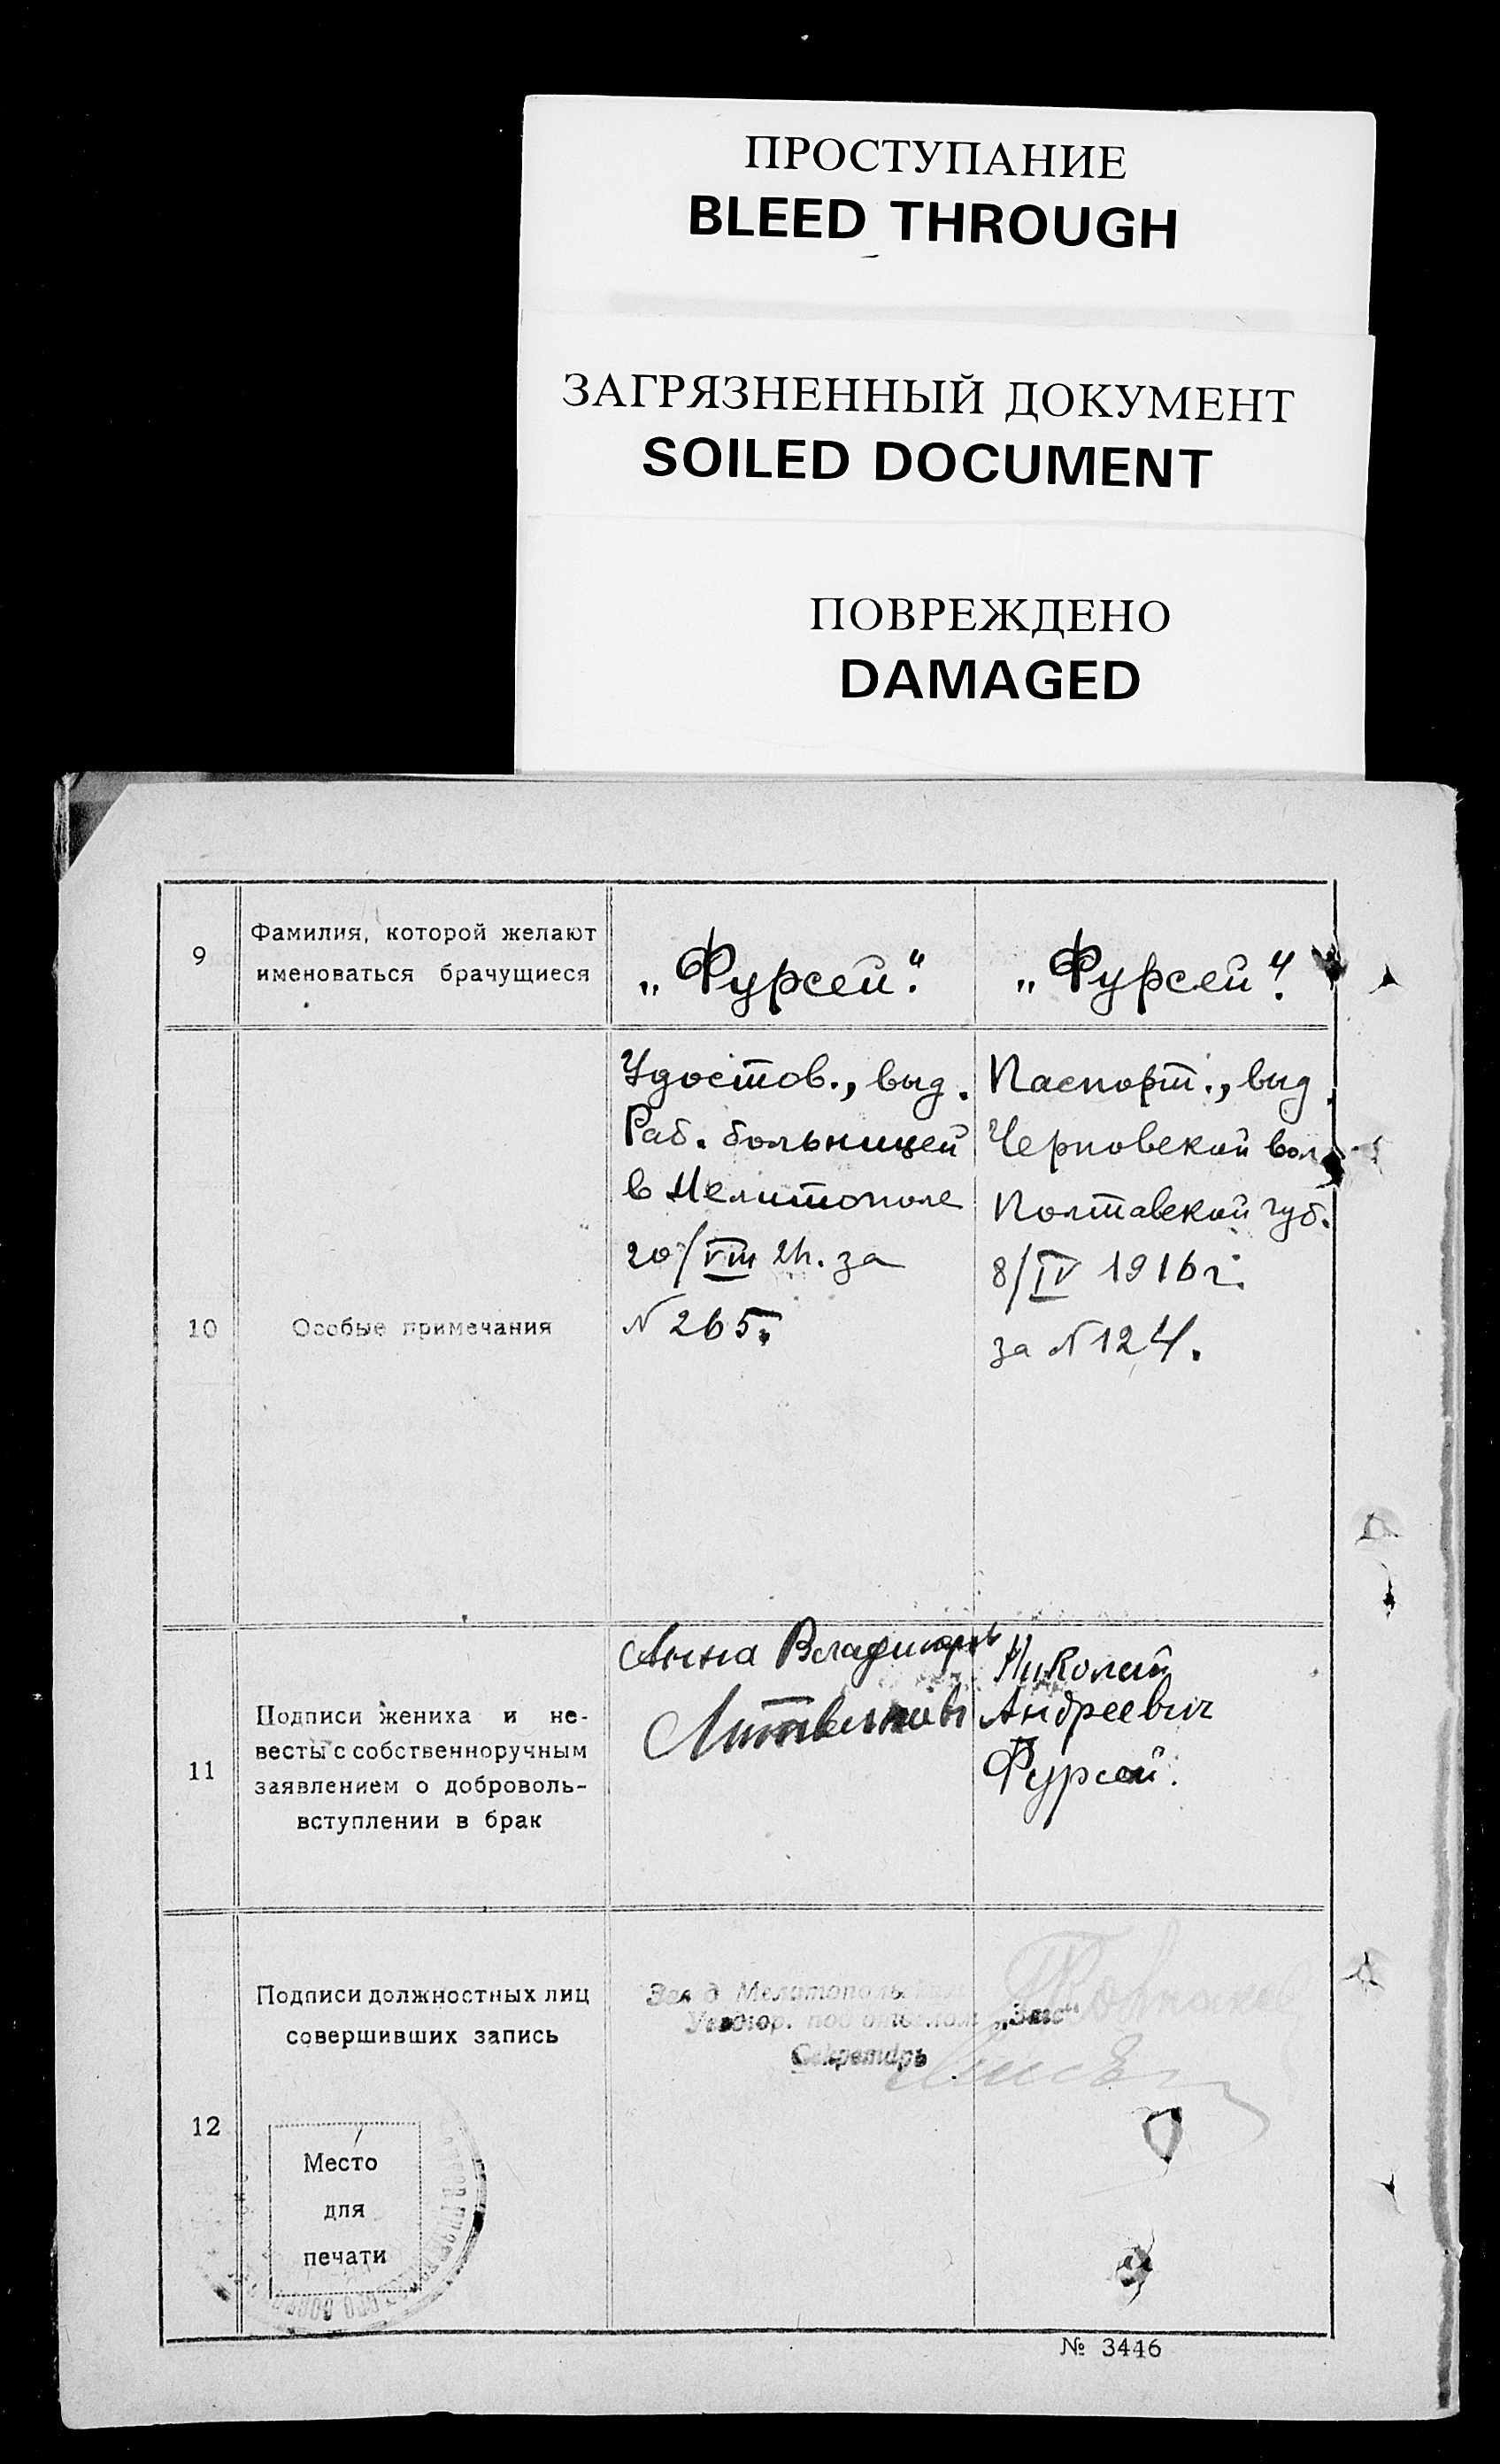 ПРОСТУПАНИЕ
BLEED THROUGH
ЗАГРЯЗНЕННЫЙ ДОКУМЕНТ
SOILED DOCUMENT
ПОВРЕЖДЕНО
DAMAGED
9
Фамилия, которой желают
именоваться брачущиеся
„Фурсей“.
„Фурсей“.
10
Особые примечания
Удостов., выд.
Раб. больницей
в Мелитополе
20/VIII 21г. за
№ 265.
Паспорт., выд.
Черновской вол.
Полтавской губ.
8/IV 1916г.
за № 124.
11
Подписи жениха и не-
весты с собственноручным
заявлением о доброволь-
вступлении в брак
Анна
Николай
Андреевич
Фурсей.
12
Подписи должностных лиц
совершивших запись
„Загс“
Секретарь
Место
для
печати
№ 3446